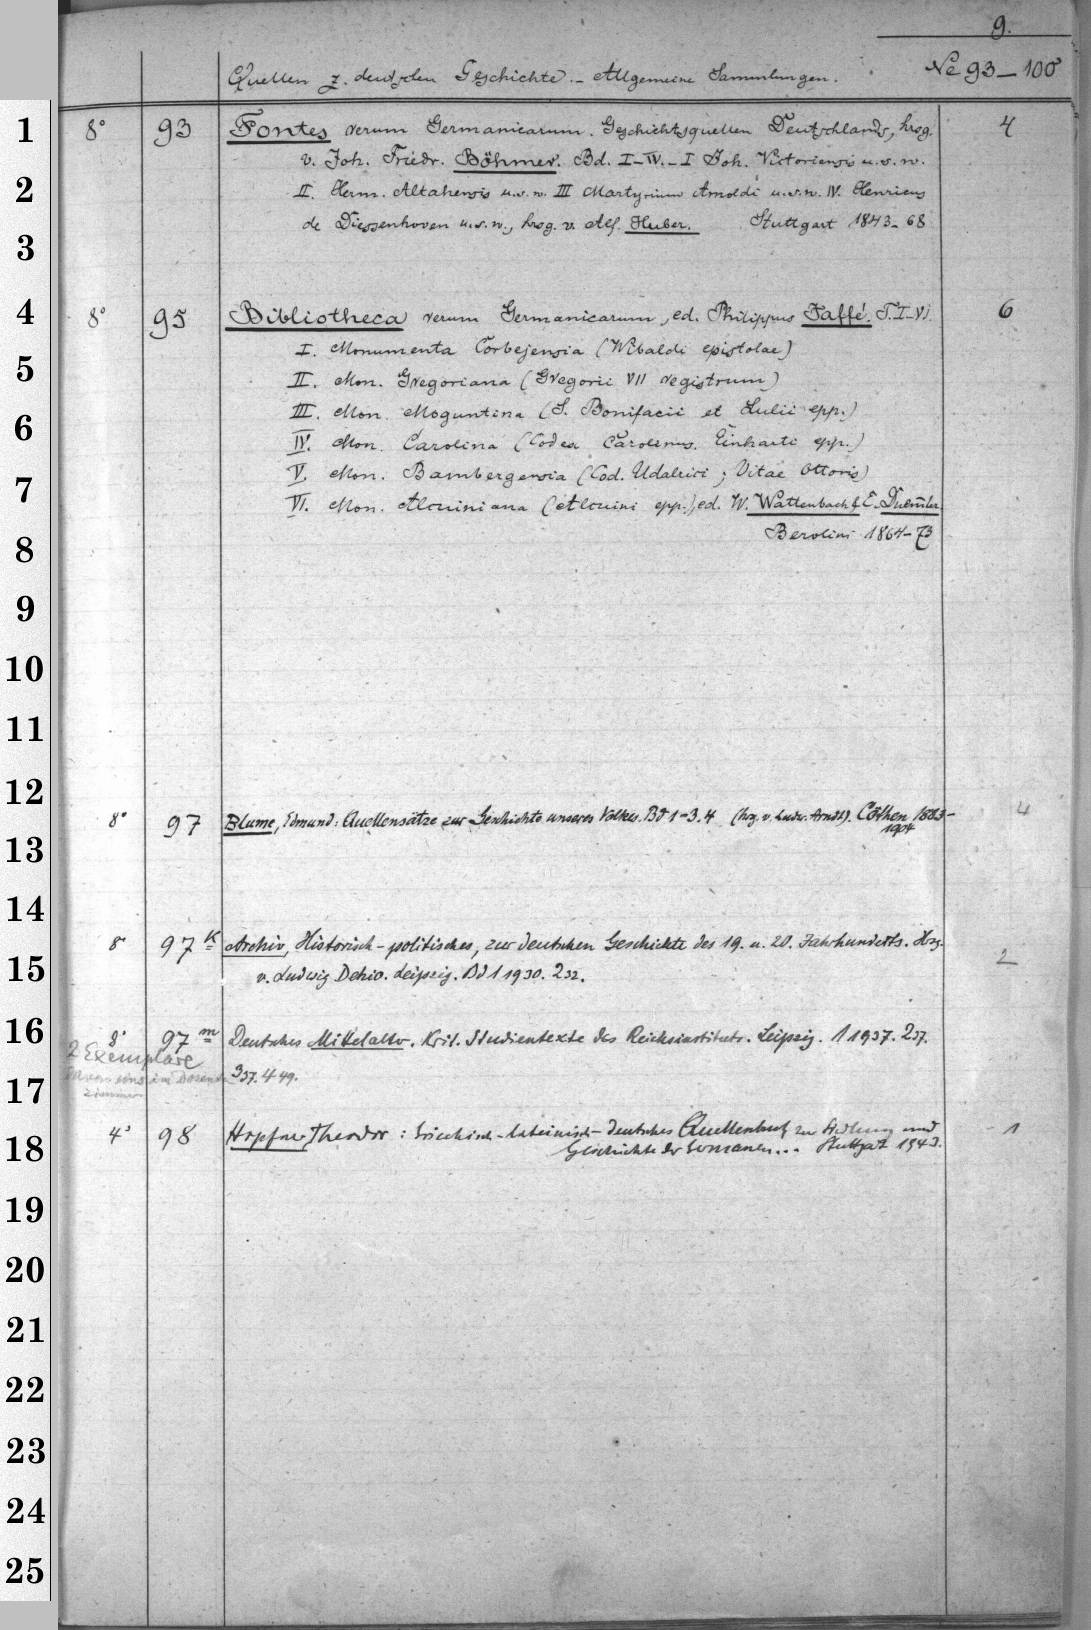 9.
Quellen z. deutschen Geschichte. – Allgemeine Sammlungen. Ne 93–100
1 8° 93 Fontes rerum Germanicarum. Geschichtsquellen Deutschlands, hrsg. 4
v. Joh. Friedr. Böhmer. Bd. I–IV. – I Joh. Victoriensis u.s.w.
2 II. Herm. Altahensis u.s.w. III Martyrium Arnoldi u.s.w. IV. Henricus
de Diessenhoven u.s.w., hrsg. v. Alf. Huber. Stuttgart 1843–68
3
4 8° 95 Bibliotheca rerum Germanicarum, ed. Philippus Jaffé. T. I–VI. 6
I. Monumenta Corbejensia (Wibaldi epistolae)
5 II. Mon. Gregoriana (Gregorii VII registrum)
III. Mon. Moguntina (S. Bonifacii et Lulii epp.)
6 IV. Mon. Carolina (Codex Carolinus. Einharti epp.)
V. Mon. Bambergensia (Cod. Udalrici ; Vitae Ottonis)
7 VI. Mon. Alcuiniana (Alcuini epp.) ed. W. Wattenbach & E. Duemler
8 Berolini 1864–73
9
10
11
12 8° 97 Blume, Edmund: Quellensätze zur Geschichte unseres Volkes. Bd 1–3. 4 (hrg. v. Ludw. Arndt). Cöthen 1883– 4
1904
13
14
8° 97 k Archiv, Historisch-politisches, zur deutschen Geschichte des 19. u. 20. Jahrhunderts. Hrsg. 2
15 v. Ludwig Dehio. Leipzig. Bd 1 1930. 2 32.
16 8° 97 m Deutsches Mittelalter. Krit. Studientexte des Reichsinstituts. Leipzig. 1 1937. 2 37.
2 Exemplare
3 37. 4 49.
davon eins im Dozenten
zimmer
17
18 4° 98 Hopfner Theodor : Griechisch-lateinisch-deutsches Quellenbuch zu Siedlung und 1
Geschichte der Germanen... Stuttgart 1943.
19
20
21
22
23
24
25